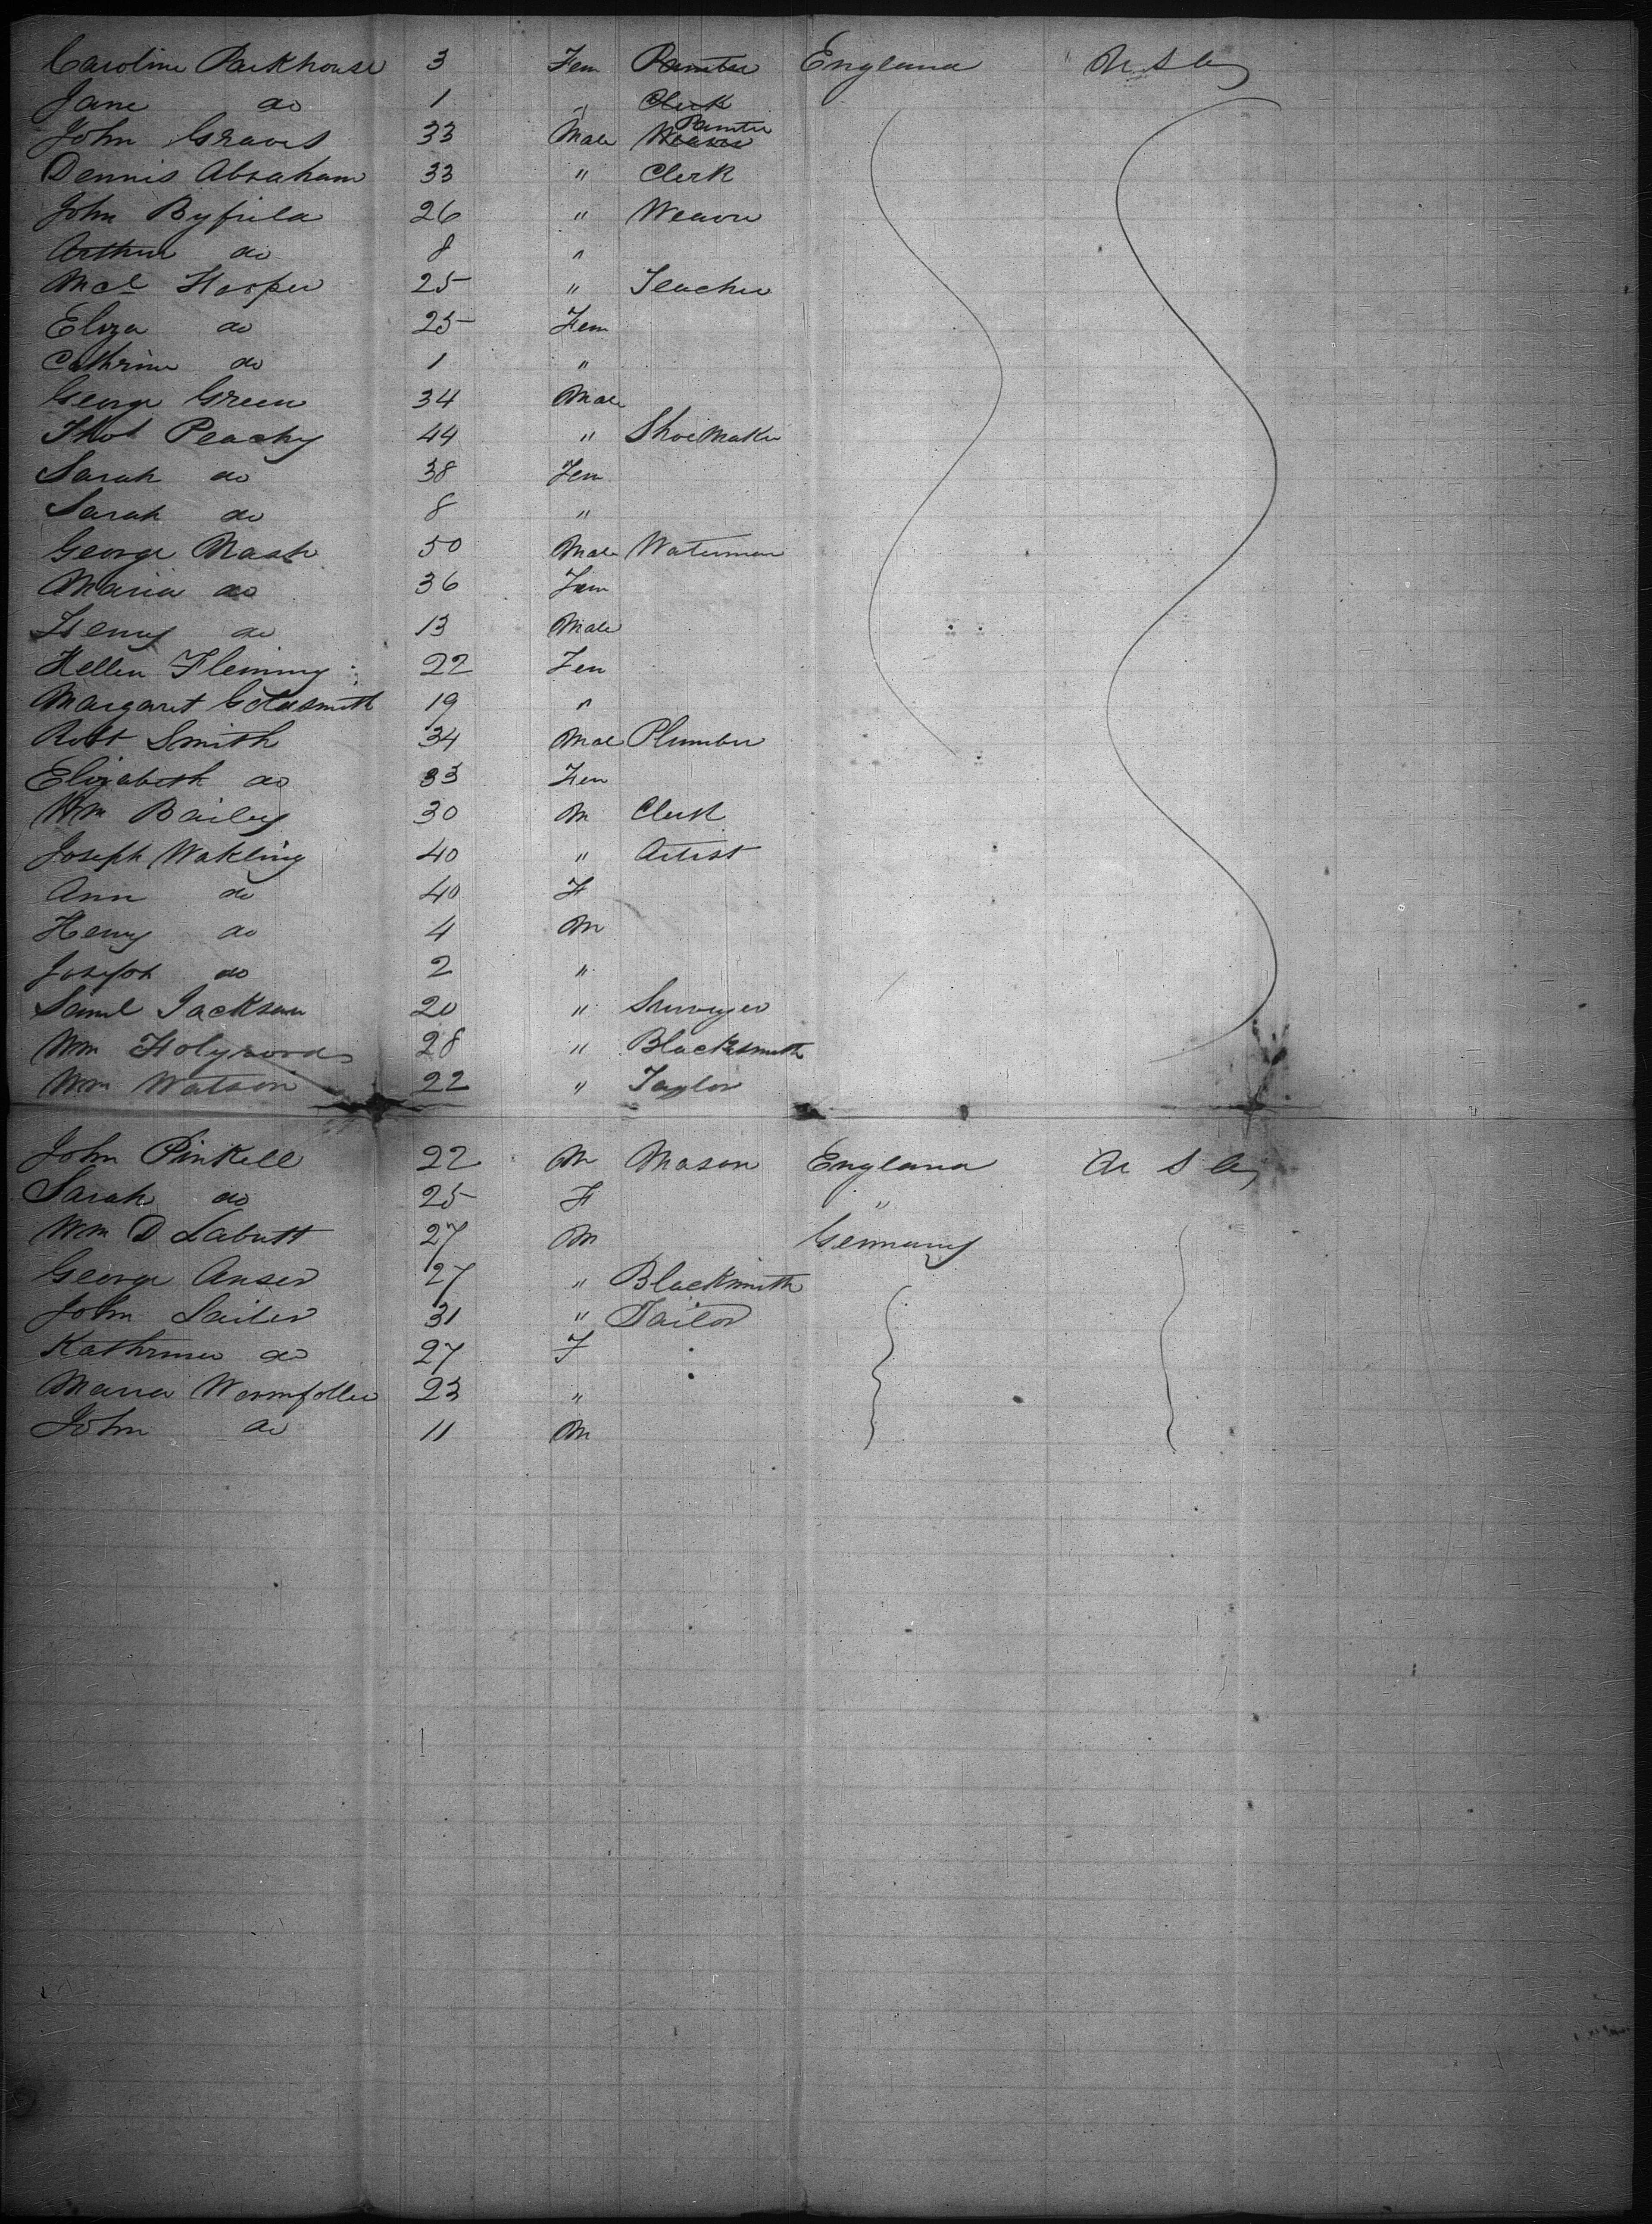 Caroline Parkhouse 3 Fem Painter England
Jane do 1 " Clerk
John Graves 33 Male Weaver Painter
Dennis Abraham 33 " Clerk
John Byfield 26 " Weaver
Arthur do 8 "
Hooper 25 " Teacher
Eliza do 25 Fem
Cathrine do 1 "
George Green 34 Male
Thos Peachy 44 " Shoe Maker
Sarah do 38 Fem
Sarah do 8 "
George Nash 50 Male Waterman
Maria do 36 Fem
Henry do 13 Male
Hellen Fleming 22 Fem
Margaret Goldsmith 19 "
Robt Smith 34 Male Plumber
Elizabeth do 33 Fem
Wm Bailey 30 M Clerk
Joseph Wakling 40 " Artist
Ann do 40 F
Henry do 4 M
Joseph do 2 "
Saml Jackson 20 " Surveyer
Wm Holywood 28 " Blacksmith
Wm Watson 22 " Taylor
John Pinkell 22 M Mason England
Sarah do 25 F "
Wm D Labutt 27 M Germany
George Anser 27 " Blacksmith
John Sailer 31 " Tailor
Kathrine do 27 F
Maria 23 "
John do 11 M